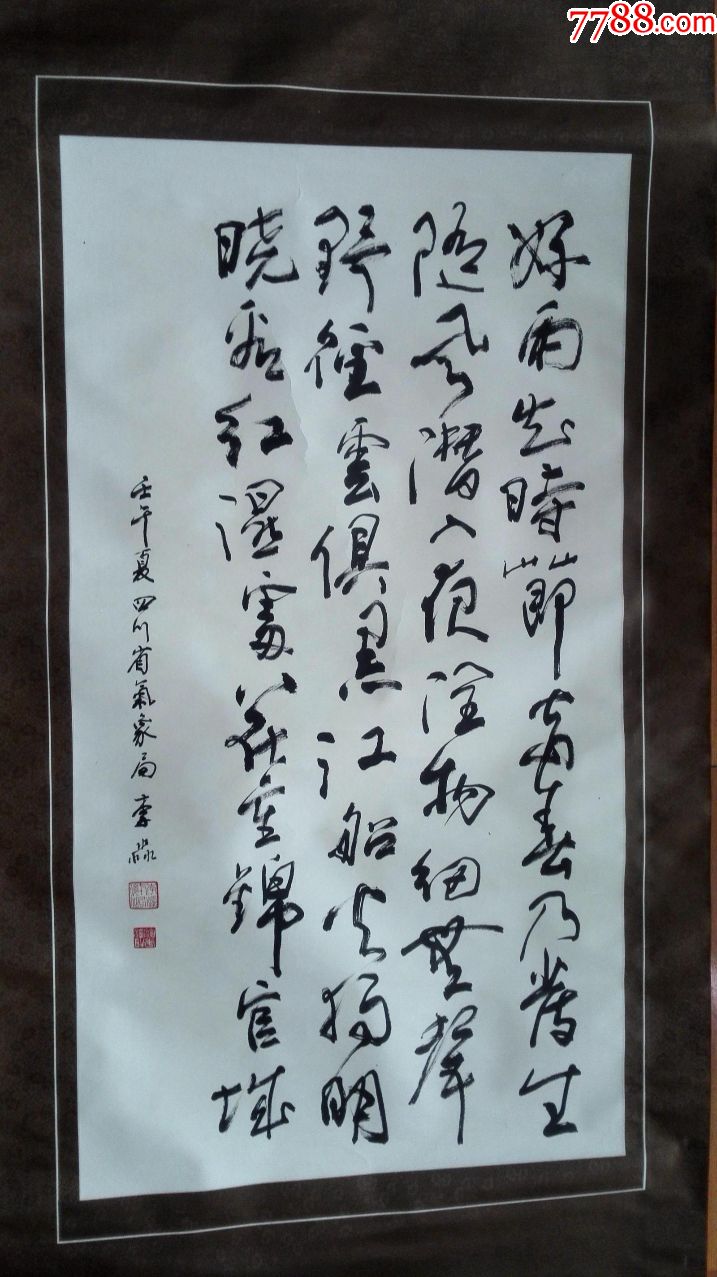 7788.com
好雨知時節當春乃發生
隨風潛入夜潤物細無聲
野徑雲俱黑江船火獨明
曉看紅濕處花重錦官城
壬午夏四川省氣象局李